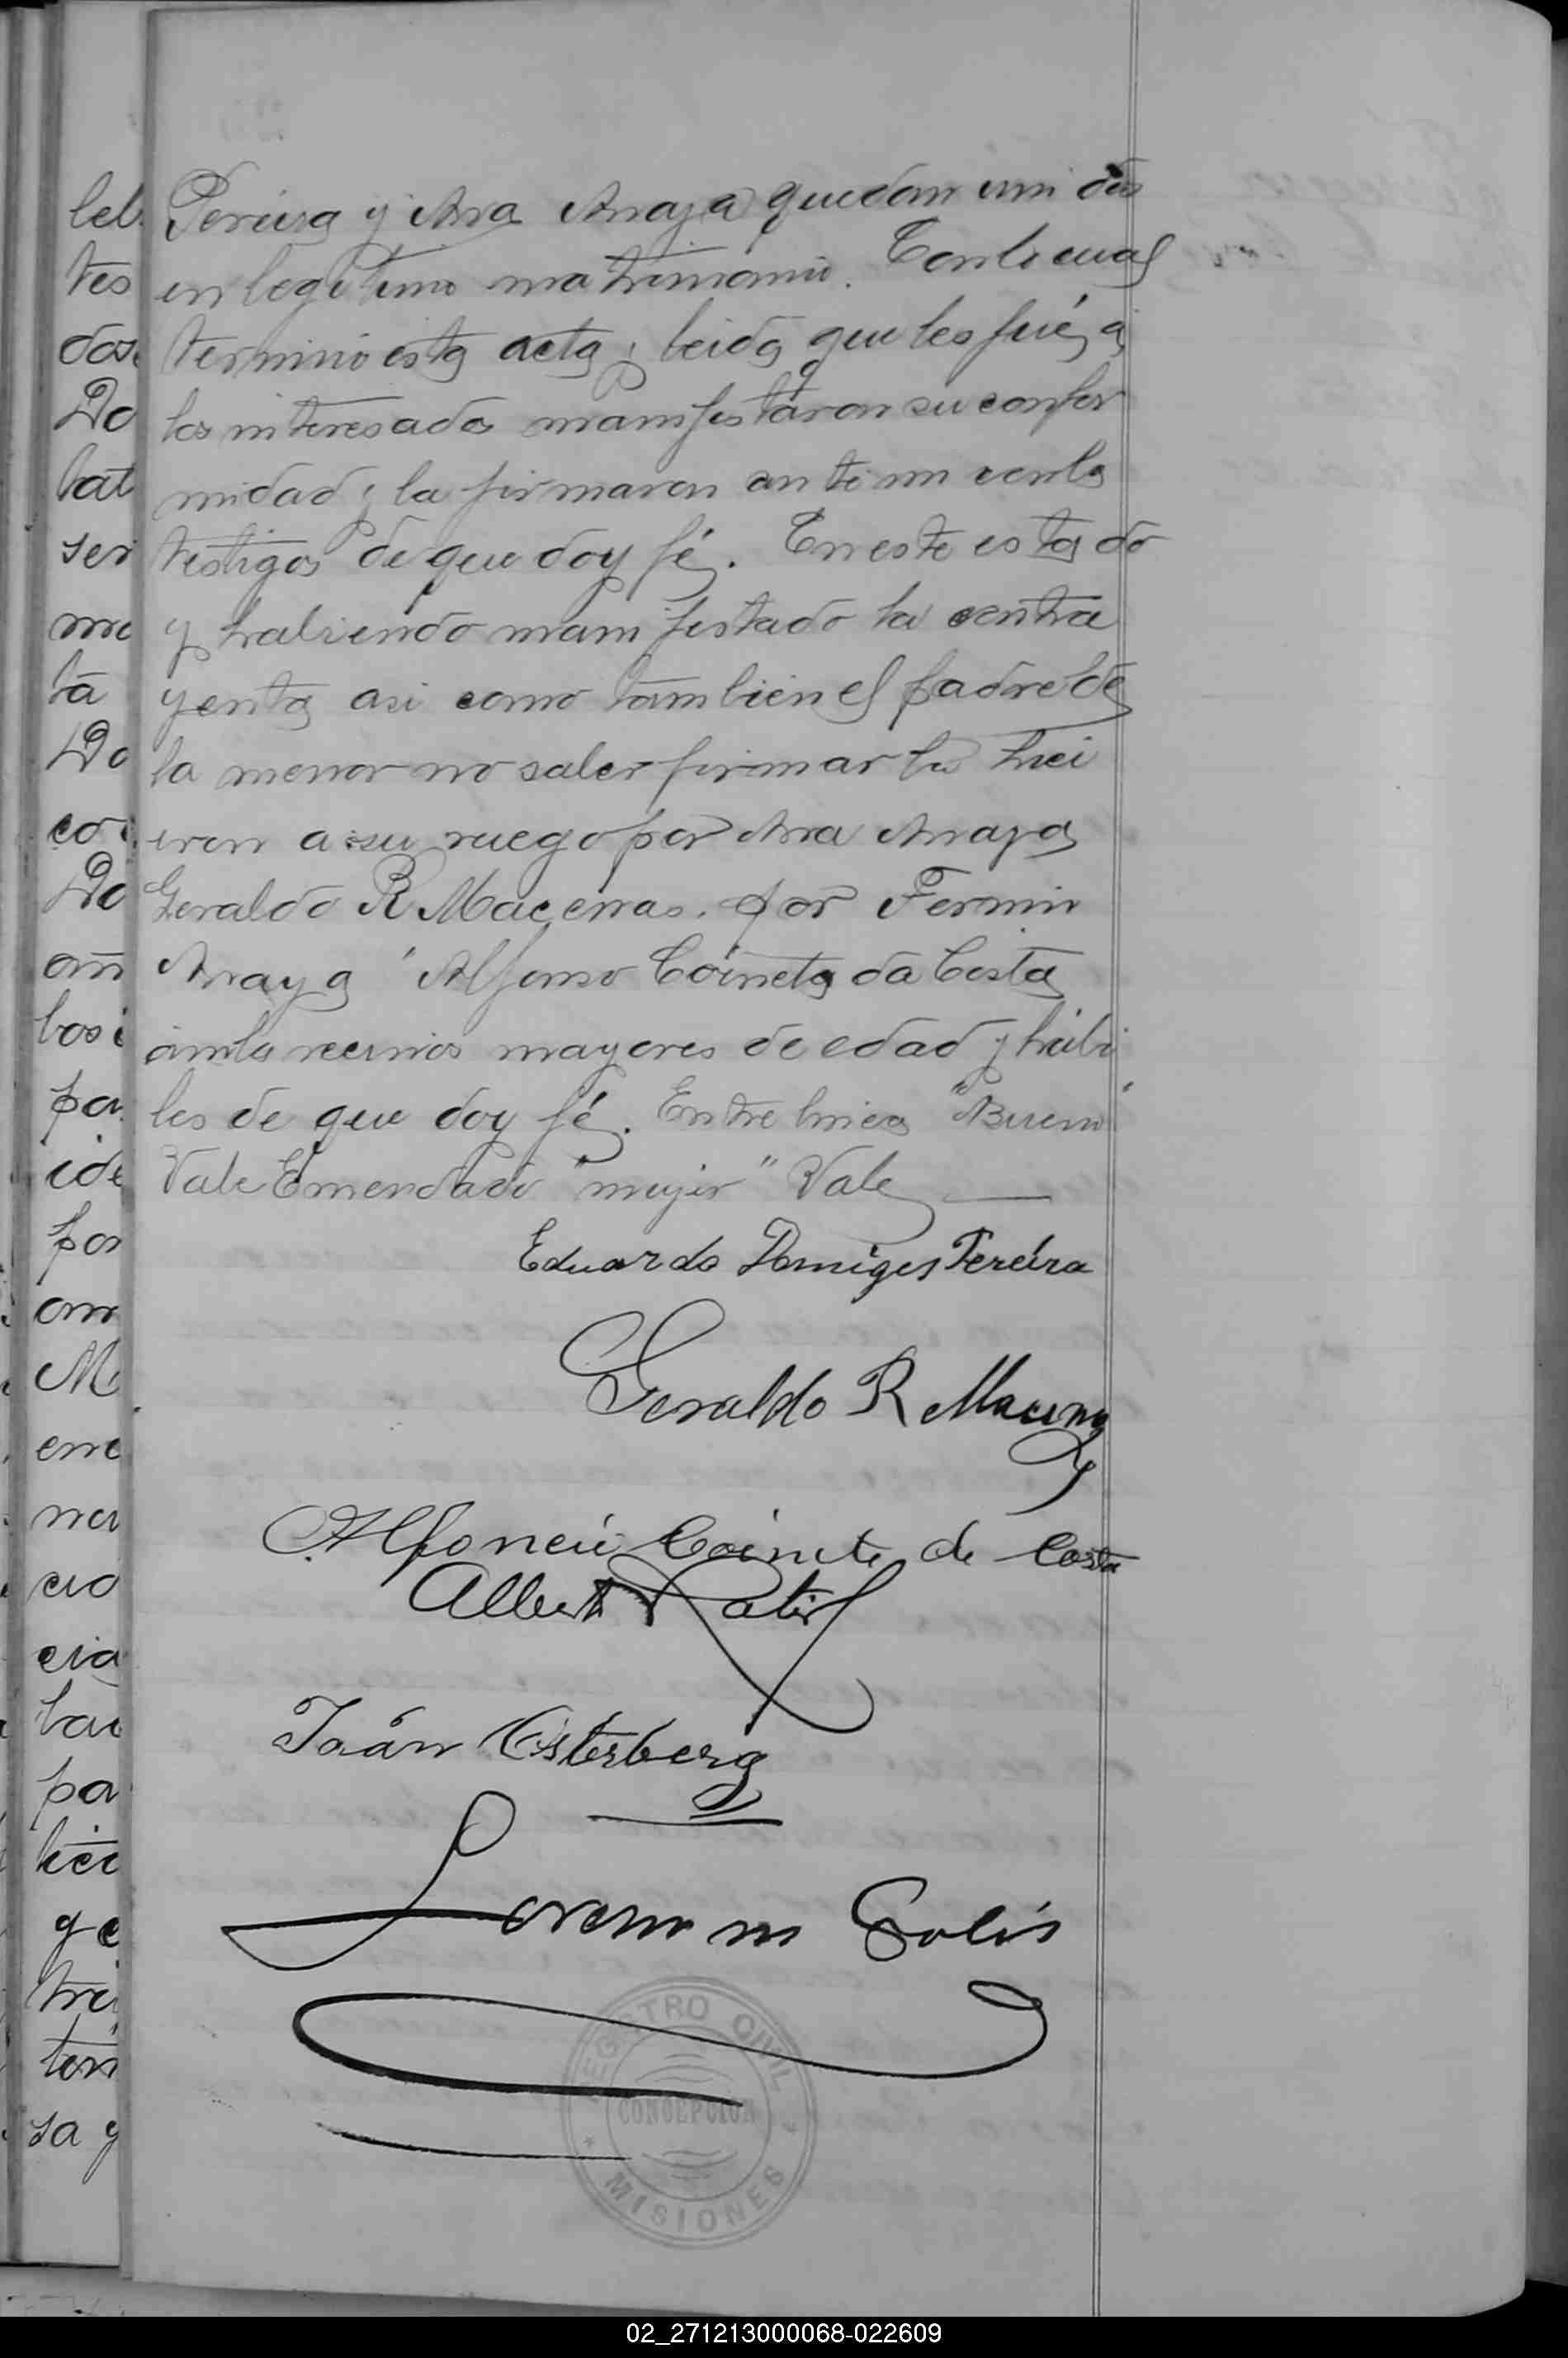 lel.
tes
dose
Do
bat
ser
me
ta
Do
co
Do
am
bos
por
ide
por
om
M
eme
nar
cio
cia
bai
pa
lici
ge
tri
ten
sa y
Pereira y Ana Anaya quedan unidos
en legitimo matrimonio. Con lo cual
terminó esta acta, leida que les fué, á
los interesados manifestáron su confor
midad y la firmaron ante mi con los
testigos de que doy fé. En este estado
y habiendo manifestado la contra
yente asi como tambien el padre de
la menor no saber firmar lo hici
eron a su ruego por Ana Anaya
Geraldo R Macenas. por Fermin
Anaya Alfonso Coineta da Costa
ambos vecinos mayores de edad y hábi
les de que doy fé. Entre linea "Bueno"
Vale Emendado "mujer" Vale
Eduardo Domiges Pereira
Geraldo R Macenas
Alfoncio Coineta de Costa
Albert
Joán Osterberg
Lorenzo M Solis
REGISTRO CIVIL
CONCEPCION
* MISIONES *
02_271213000068-022609